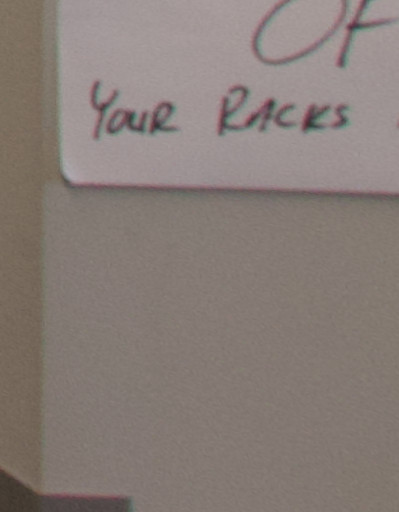 OF
YOUR RACKS